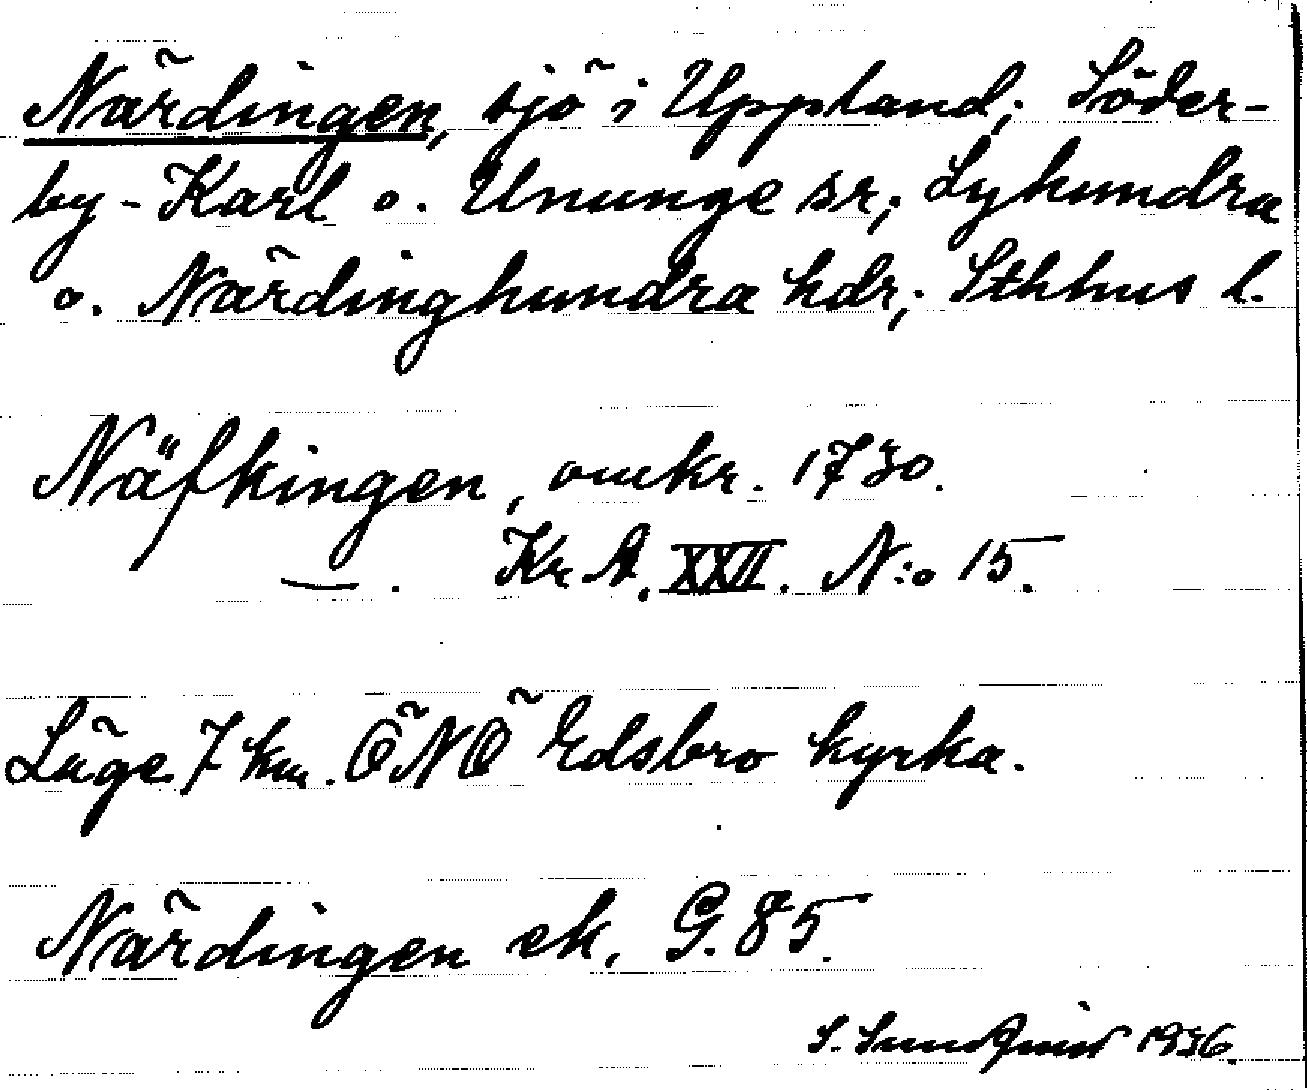 Närdingen, sjö i Uppland; Söder-
by-Karl o. Ununge sr; Lyhundra
o. Närdinghundra hdr; Sthlms l.
Näfkingen, omkr. 1730.
Kr A. XXII. N:o 15.
Läge 7 km. ÖNÖ Edsbro kyrka.
Närdingen ek. G. 85.
S. Sundqvist 1936.